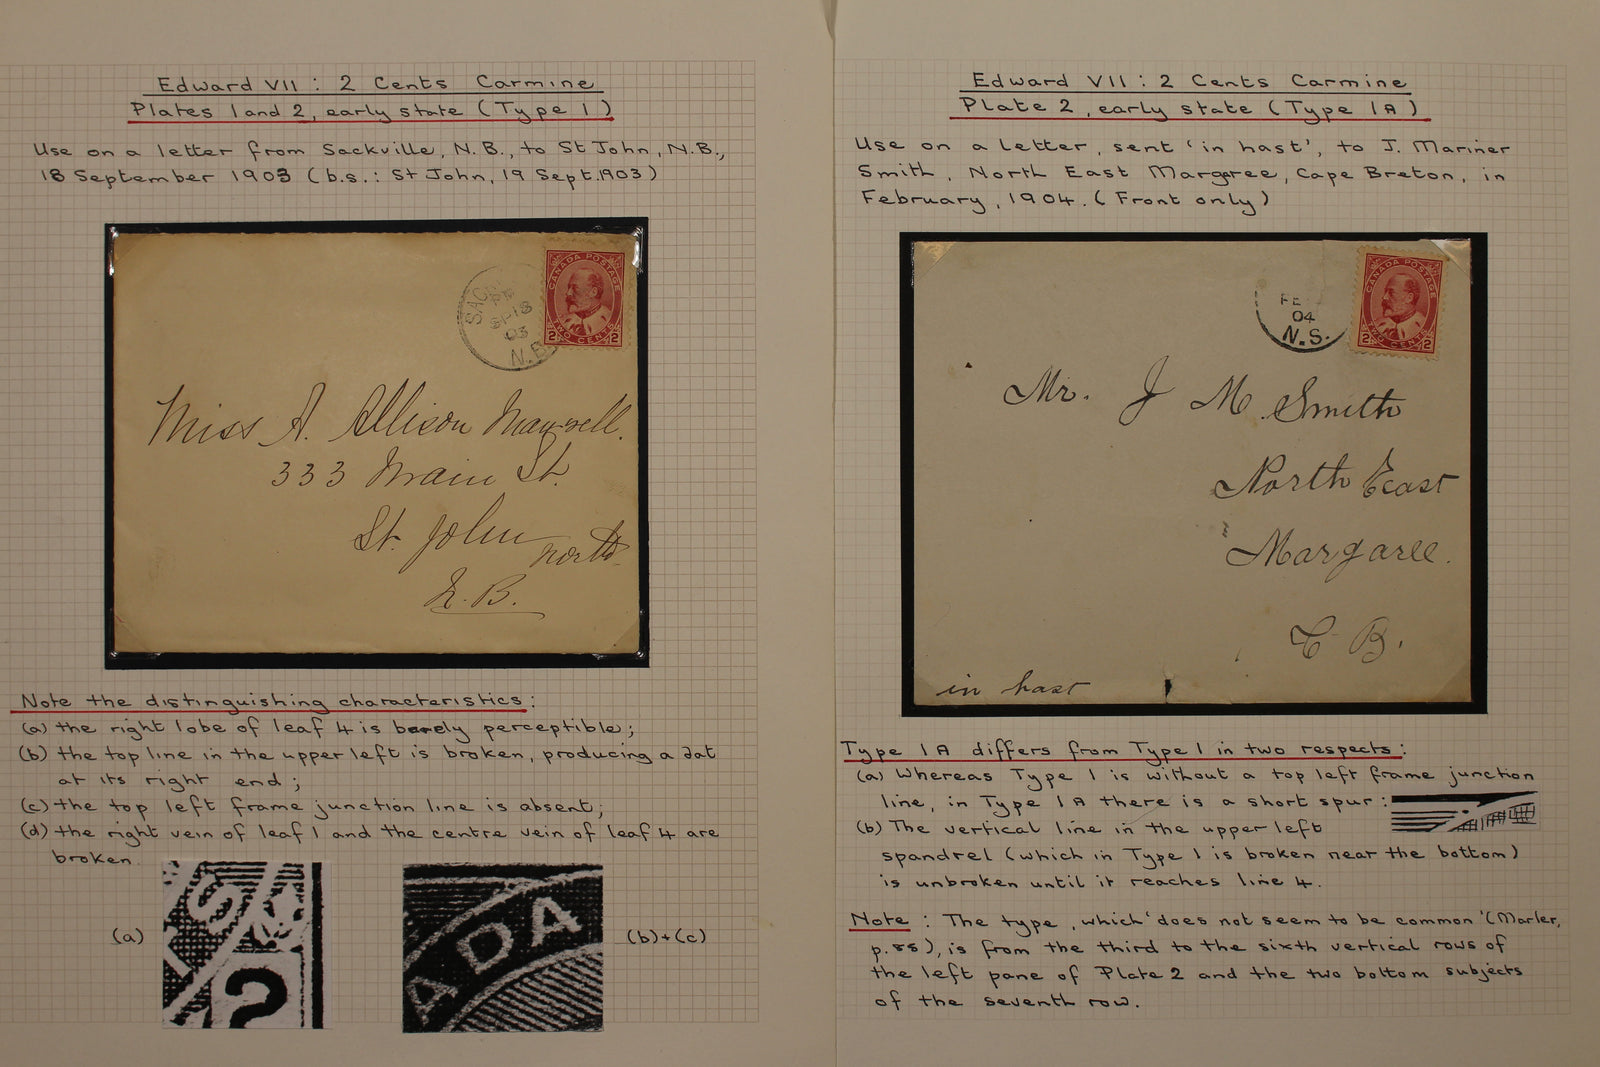 Edward VII : 2 Cents Carmine
Plates 1 and 2, early state (Type 1)
Use on a letter from Sackville, N.B., to St John, N.B.,
18 September 1903 (b.s.: St John, 19 Sept. 1903)
CANADA POSTAGE
2 TWO CENTS 2
SAC
PM
SP 18
03
N.B.
Miss A. Allison Maxwell.
333 Main St.
St. John
North
N. B.
Note the distinguishing characteristics:
(a) the right lobe of leaf 4 is barely perceptible;
(b) the top line in the upper left is broken, producing a dot
at its right end;
(c) the top left frame junction line is absent;
(d) the right vein of leaf 1 and the centre vein of leaf 4 are
broken.
(a)
S
2
ADA
(b)+(c)
Edward VII : 2 Cents Carmine
Plate 2, early state (Type 1A)
Use on a letter, sent 'in hast', to J. Mariner
Smith, North East Margaree, Cape Breton, in
February, 1904. (Front only)
CANADA POSTAGE
2 TWO CENTS 2
FE
04
N.S.
Mr. J M. Smith
North East
Margaree.
C B.
in hast
Type 1A differs from Type 1 in two respects:
(a) Whereas Type 1 is without a top left frame junction
line, in Type 1A there is a short spur:
(b) The vertical line in the upper left
spandrel (which in Type 1 is broken near the bottom)
is unbroken until it reaches line 4.
Note : The type, which 'does not seem to be common' (Marler,
p.88), is from the third to the sixth vertical rows of
the left pane of Plate 2 and the two bottom subjects
of the seventh row.